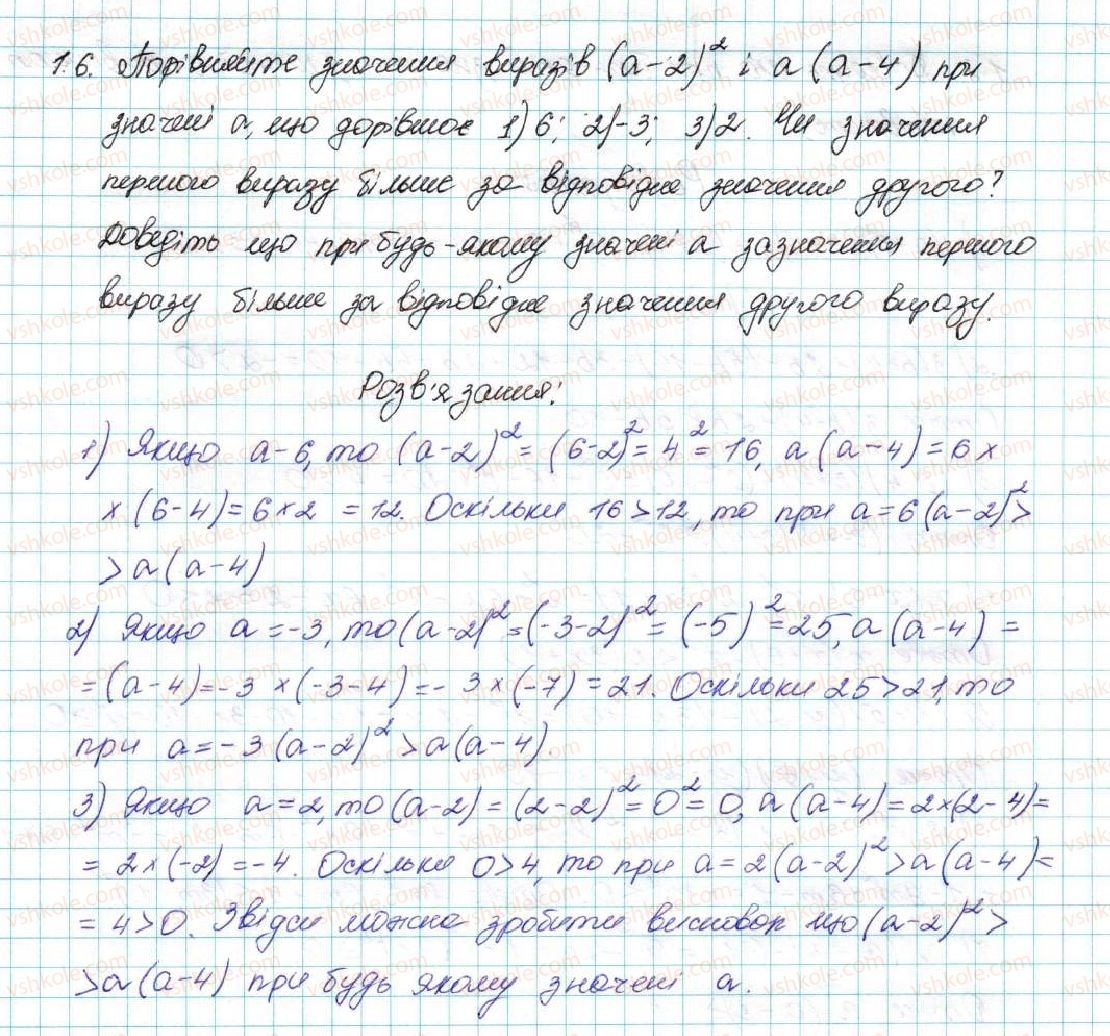 1.6. Порівняйте значення виразів (a-2)² і a(a-4) при
значені a, що дорівнює 1) 6; 2) -3; 3) 2. Чи значення
першого виразу більше за відповідне значення другого?
Доведіть що при будь-якому значені a зазначення першого
виразу більше за відповідне значення другого виразу.
Розв'язання:
1) Якщо a-6, то (a-2)² = (6-2)² = 4² = 16, a(a-4) = 6 ×
× (6-4) = 6×2 = 12. Оскільки 16>12, то при a=6 (a-2)² >
> a(a-4)
2) Якщо a=-3, то (a-2)² = (-3-2)² = (-5)² = 25, a(a-4) =
= (a-4) = -3 × (-3-4) = -3×(-7) = 21. Оскільки 25>21, то
при a=-3 (a-2)² > a(a-4).
3) Якщо a=2, то (a-2) = (2-2)² = 0² = 0, a(a-4) = 2×(2-4) =
= 2×(-2) = -4. Оскільки 0>4, то при a=2 (a-2)² > a(a-4) =
= 4>0. Звідси можна зробити висновок що (a-2)² >
> a(a-4) при будь якому значені a.
vshkole.com